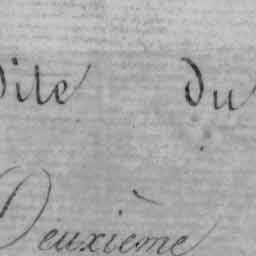 dite du
Deuxième